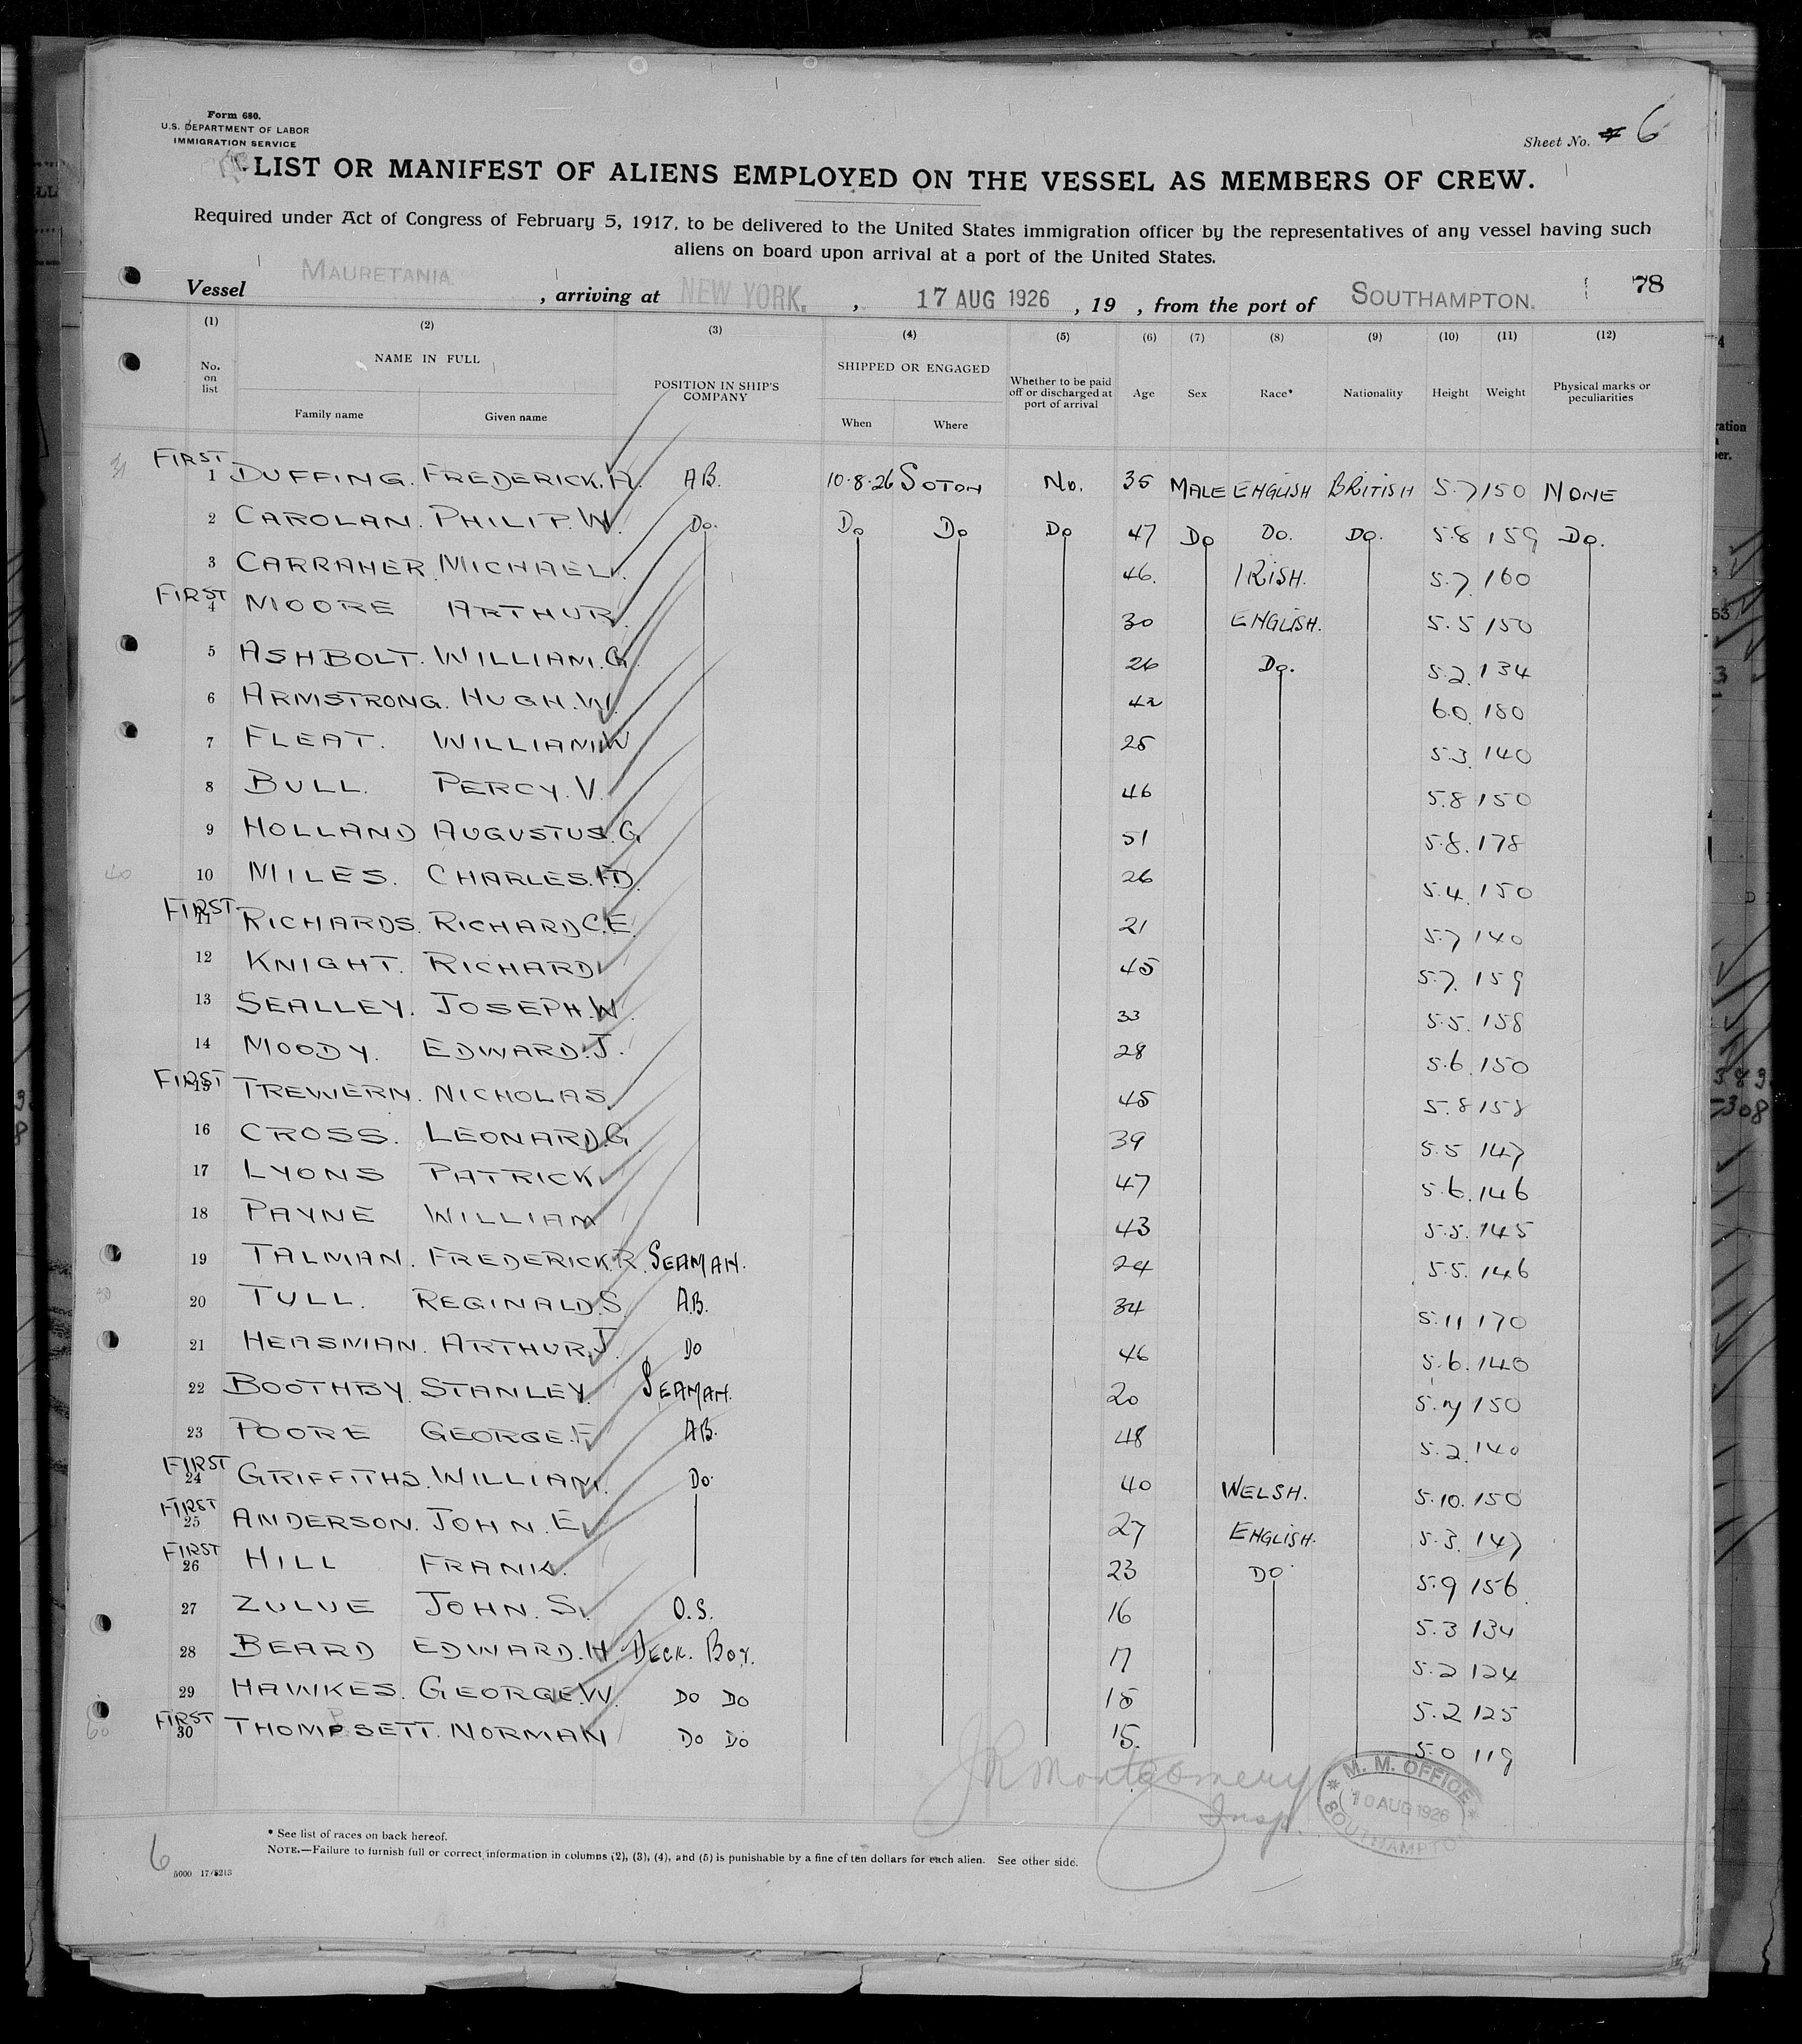 Form 680.
U.S. DEPARTMENT OF LABOR
IMMIGRATION SERVICE
Sheet No. 6
LIST OR MANIFEST OF ALIENS EMPLOYED ON THE VESSEL AS MEMBERS OF CREW.
Required under Act of Congress of February 5, 1917, to be delivered to the United States immigration officer by the representatives of any vessel having such
aliens on board upon arrival at a port of the United States.
Vessel MAURETANIA, arriving at NEW YORK., 17 AUG 1926, 19 , from the port of SOUTHAMPTON. 78
(1) (2) (3) (4) (5) (6) (7) (8) (9) (10) (11) (12)
No. on list NAME IN FULL POSITION IN SHIP'S COMPANY SHIPPED OR ENGAGED Whether to be paid off or discharged at port of arrival Age Sex Race* Nationality Height Weight Physical marks or peculiarities
Family name Given name When Where
FIRST 1 DUFFING. FREDERICK. A. AB. 10.8.26 SOTON No. 35 MALE ENGLISH BRITISH 5.7 150 NONE
2 CAROLAN. PHILIP. W. Do. Do Do Do 47 Do Do. Do. 5.8 159 Do.
3 CARRAHER. MICHAEL. 46. IRISH. 5.7. 160
FIRST 4 MOORE ARTHUR. 30 ENGLISH. 5.5 150
5 ASHBOLT. WILLIAM. G. 26 Do. 5.2. 134
6 ARMSTRONG. HUGH. W. 42 6.0. 180
7 FLEAT. WILLIAM W 25 5.3. 140
8 BULL. PERCY. V. 46 5.8 150
9 HOLLAND AUGUSTUS. G 51 5.8. 178
40 10 MILES. CHARLES. F.D. 26 5.4. 150
FIRST 11 RICHARDS. RICHARD C.E. 21 5.7 140
12 KNIGHT. RICHARD 45 5.7. 159
13 SEALLEY. JOSEPH. W. 33 5.5. 158
14 MOODY. EDWARD. J. 28 5.6. 150
FIRST 15 TREWERN. NICHOLAS. 45 5.8 158
16 CROSS. LEONARD. G. 39 5.5 147
17 LYONS PATRICK 47 5.6. 146
18 PAYNE WILLIAM 43 5.5. 145
19 TALMAN. FREDERICK. R. SEAMAN. 24 5.5. 146
20 TULL. REGINALD. S. A.B. 34 5.11 170
21 HEASMAN. ARTHUR. J. Do 46 5.6. 140
22 BOOTHBY. STANLEY. SEAMAN. 20 150
23 POORE GEORGE. F. AB. 48 5.2. 140
FIRST 24 GRIFFITHS. WILLIAM. Do. 40 WELSH. 5.10. 150
FIRST 25 ANDERSON. JOHN. E. 27 ENGLISH. 5.3. 147
FIRST 26 HILL FRANK. 23 Do 5.9 156
27 ZULUE JOHN. S. O.S. 16 5.3 134
28 BEARD EDWARD. H. DECK. BOY. 17 5.2 124
29 HAWKES. GEORGE. W. Do Do 15 5.2 125
60 FIRST 30 THOMPSETT. NORMAN Do Do 15. 5.0 119
J R Montgomery
Insp.
* M. M. OFFICE *
10 AUG 1926
SOUTHAMPTON
* See list of races on back hereof.
NOTE.—Failure to furnish full or correct information in columns (2), (3), (4), and (5) is punishable by a fine of ten dollars for each alien. See other side.
6
5000 17/8213